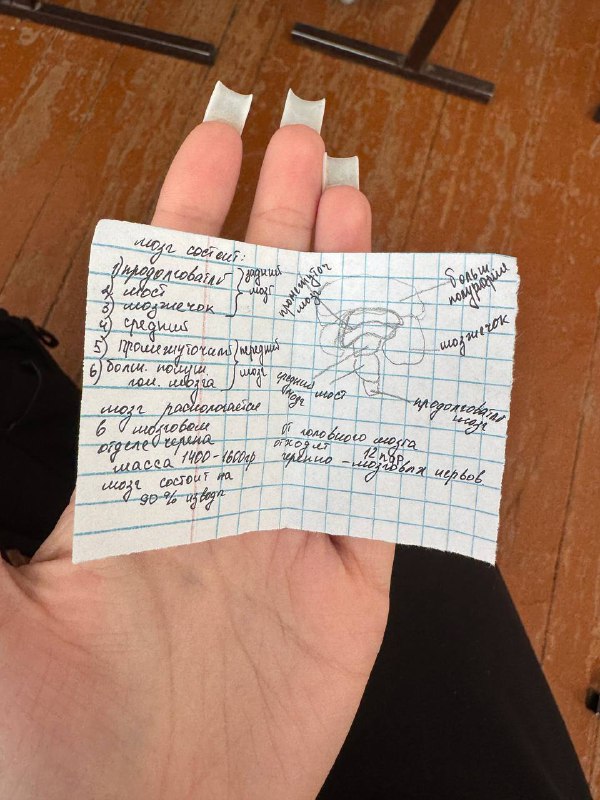 мозг состоит:
1) продолговатый } задний
2) мост } мозг
3) мозжечок
4) средний
5) промежуточный } передний
6) болш. полуш. } мозг
гол. мозга
мозг распологается
в мозговом
отделе черепа
масса 1400-1600гр
мозг состоит на
90% из воды
промежуточ
мозг
больш.
полушария
мозжечок
средний
мозг
мост
продолговатый
мозг
от головного мозга
отходят 12 пар
черепно-мозговых нервов